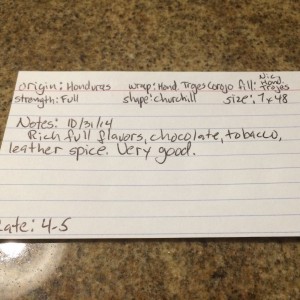 origin: Honduras wrap: Hond. Trojes Corojo fill: Nic, Hond Trojas
strength: Full shape: churchill size: 7x48
Notes: 10/31/14
Rich full flavors, chocolate, tobacco,
leather spice. Very good.
ate: 4-5